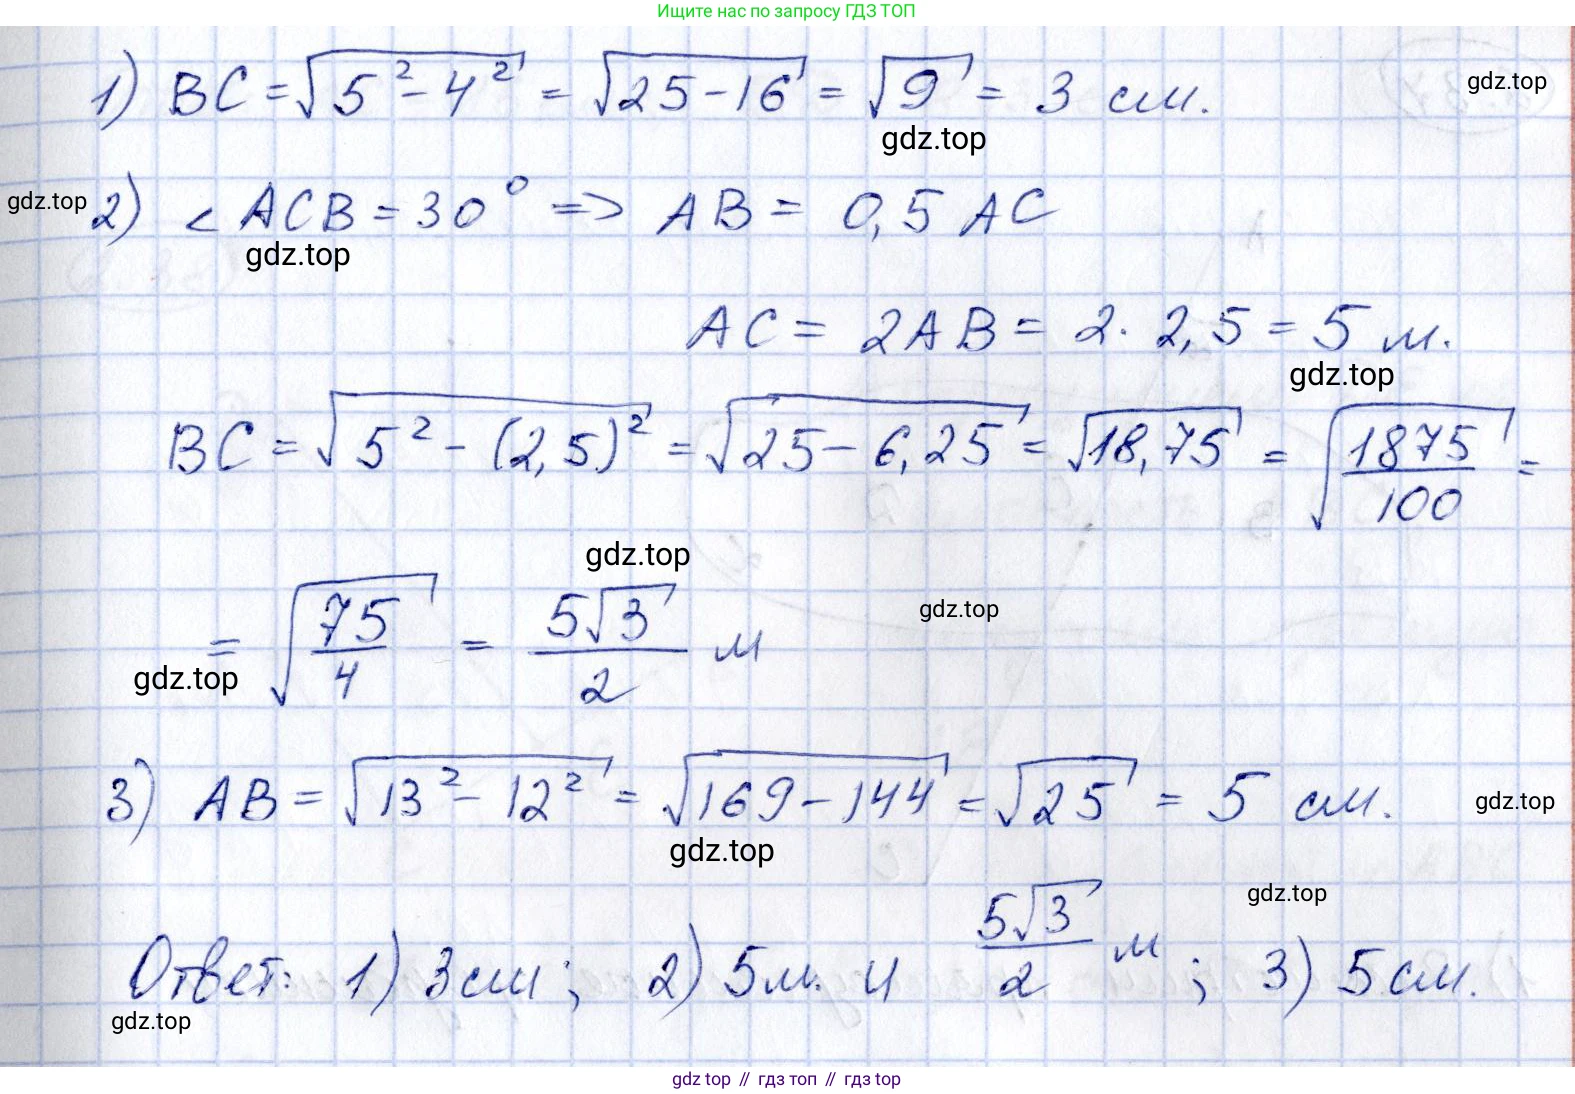 Ищите нас по запросу ГДЗ ТОП
1) BC = √(5² - 4²) = √(25 - 16) = √9 = 3 см.
gdz.top
gdz.top
gdz.top
2) ∠ ACB = 30° => AB = 0,5 AC
gdz.top
AC = 2AB = 2 · 2,5 = 5 м.
gdz.top
BC = √(5² - (2,5)²) = √(25 - 6,25) = √18,75 = √(1875/100) =
gdz.top
gdz.top
= √(75/4) = 5√3/2 м
gdz.top
3) AB = √(13² - 12²) = √(169 - 144) = √25 = 5 см.
gdz.top
gdz.top
gdz.top
Ответ: 1) 3 см; 2) 5 м. и 5√3/2 м; 3) 5 см.
gdz.top
gdz top // гдз топ // гдз top